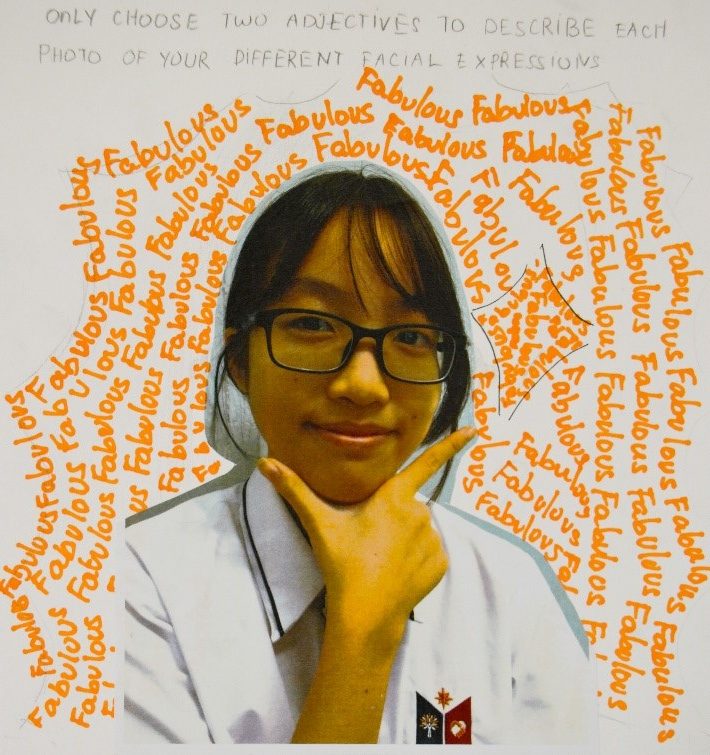 ONLY CHOOSE TWO ADJECTIVES TO DESCRIBE EACH
PHOTO OF YOUR DIFFERENT FACIAL EXPRESSIONS
Fabulous Fabulous Fabulous Fabulous
Fabulous Fabulous Fabulous Fabulous Fabulous
Fabulous Fabulous Fabulous Fabulous Fabulous
Fabulous Fabulous Fabulous Fabulous Fabulous
Fabulous Fabulous Fabulous Fabulous
Fabulous Fabulous Fabulous Fabulous
Fabulous Fabulous Fabulous Fabulous
Fabulous Fabulous Fabulous Fabulous
Fabulous Fabulous Fabulous Fabulous
Fabulous Fabulous Fabulous Fabulous
Fabulous Fabulous Fabulous Fabulous
Fabulous Fabulous Fabulous